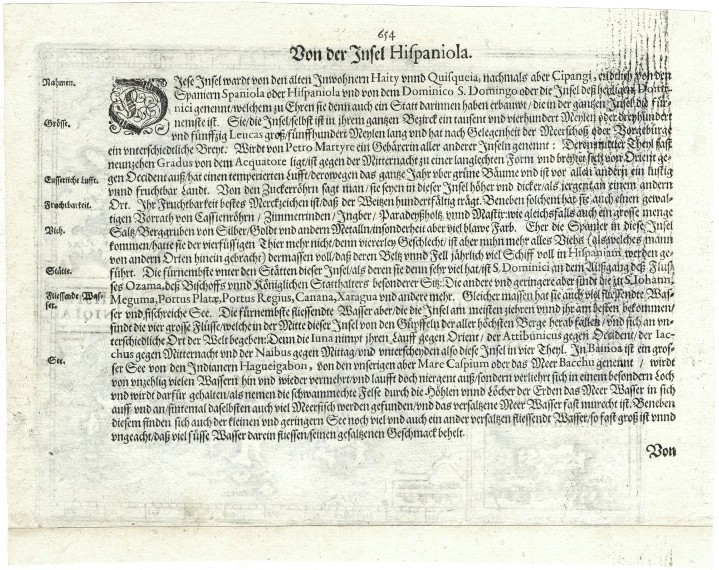 654
Von der Insel Hispaniola.
Nahmen.
DJese Insel wardt von den alten Jnwohnern Haity vnnd Quisqueia, nachmals aber Cipangi, endtlich von den
Spaniern Spaniola oder Hispaniola vnd von dem Dominico S. Domingo oder die Jnsel deß heyligen Domi-
nici genennt/welchem zu Ehren sie denn auch ein Statt darinnen haben erbauwt/die in der gantzen Jnsel die für-
Grösse.
nemste ist. Sie/die Jnsel/selbst ist in jhrem gantzen Bezirck ein tausent vnd vierhundert Meylen oder dreyhundert
vnd fünffzig Leucas groß/fünffhundert Meylen lang vnd hat nach Gelegenheit der Meerschoß oder Vorgebürge
ein vnterschiedtliche Breyt. Wirdt von Petro Martyre ein Gebärerin aller anderer Jnseln genennt: Deren mitler Theyl fast
neunzehen Gradus von dem Aequatore ligt/ist gegen der Mitternacht zu einer langlechten Form vnd breytet sich von Orient ge-
Eusserliche Lufft.
gen Occident auß/hat einen temperierten Lufft/derowegen das gantze Jahr vber grüne Bäume vnd ist vor allen andern ein lustig
vnnd fruchtbar Landt. Von den Zuckerröhrn sagt man/sie seyen in dieser Jnsel höher vnd dicker/als jergent an einem andern
Fruchtbarkeit.
Ort. Jhr Fruchtbarkeit bestes Merckzeichen ist/daß der Weitzen hundertfältig trägt. Beneben solchem hat sie auch einen gewal-
tigen Vorrath von Cassienröhrn/Zimmetrinden/Jngber/Paradeyßholtz vnnd Mastix: wie gleichsfalls auch ein grosse menge
Vieh.
Saltz/Berggruben von Silber/Goldt vnd andern Metalln/insonderheit aber viel blawe Farb. Eher die Spanier in diese Jnsel
kommen/hatte sie der vierfüssigen Thier mehr nicht/denn viererley Geschlecht/ist aber nuhn mehr alles Viehs (als welches mann
von andern Orten hinein gebracht) dermassen voll/daß deren Beltz vnnd Fell jährlich viel Schiff voll in Hispaniam werden ge-
Stätte.
führt. Die fürnembste vnter den Stätten dieser Jnsel/als deren sie denn sehr viel hat/ist S. Dominici an dem Außgang deß Flus-
ses Ozama, deß Bischoffs vnnd Königlichen Statthalters besonderer Sitz: Die andere vnd geringere aber sindt die zu S. Iohann,
Fliessende Was-
ser.
Meguma, Portus Platæ, Portus Regius, Canana, Xaragua vnd andere mehr. Gleicher massen hat sie auch viel fliessendte Was-
ser vnd fischreiche See. Die fürnembste fliessendte Wasser aber/die die Jnsel am meisten zieren vnnd jhr am besten bekommen/
sindt die vier grosse Flüsse/welche in der Mitte dieser Jnsel von den Güpffeln der aller höchsten Berge herab fallen/vnd sich an vn-
terschiedliche Ort der Welt begeben: Denn die Iuna nimpt jhren Lauff gegen Orient/der Attibunicus gegen Occident/der Iac-
chus gegen Mitternacht vnd der Naibus gegen Mittag/vnd vnterscheyden also diese Jnsel in vier Theyl. Jn Bainoa ist ein gros-
See.
ser See von den Jndianern Hagueigabon, von den vnserigen aber Mare Caspium oder das Meer Bacchu genennt/wirdt
von vnzehlig vielen Wassern hin vnd wieder vermehrt/vnd laufft doch niergent auß/sondern verliehrt sich in einem besondern Loch
vnd wirdt darfür gehalten/als nemen die schwammechte Felse durch die Höhlen vnnd Löcher der Erden das Meer Wasser in sich
auff vnnd an/sintemal daselbsten auch viel Meerfisch werden gefunden/vnd das versaltzene Meer Wasser fast mürecht ist. Beneben
diesem finden sich auch der kleinen vnd geringern See noch viel vnd auch ein ander versaltzen fliessendt Wasser/so fast groß ist vnnd
vngeacht/daß viel süsse Wasser darein fliessen/seinen gesaltzenen Geschmack behelt.
Von